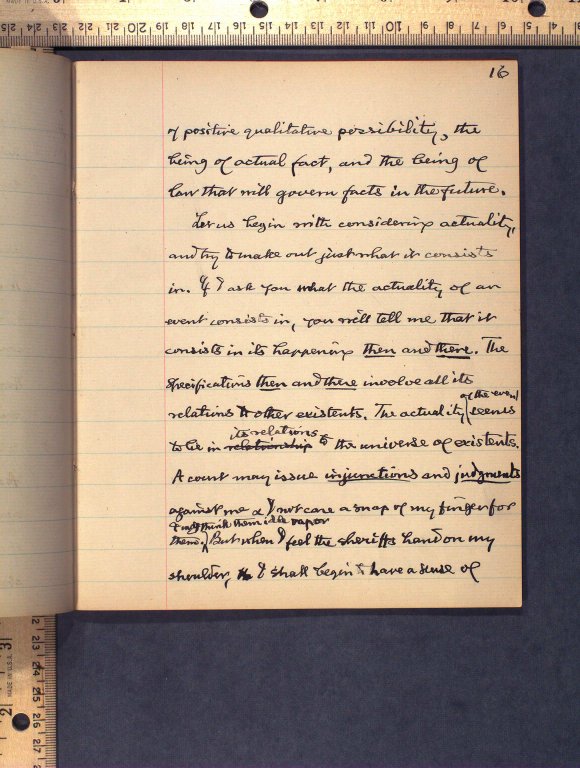 16
of positive qualitative possibility, the
being of actual fact, and the being of
law that will govern facts in the future.
Let us begin with considering actuality,
and try to make out just what it consists
in. If I ask you what the actuality of an
event consists in, you will tell me that it
consists in its happening then and there. The
specifications then and there involve all its
relations to other existents. The actuality of the event seems
to lie in relationship its relations to the universe of existents.
A court may issue injunctions and judgments
against me & I not care a snap of my finger for
them. I may think them idle vapor But when I feel the sheriff's hand on my
shoulder, I shall begin to have a sense of